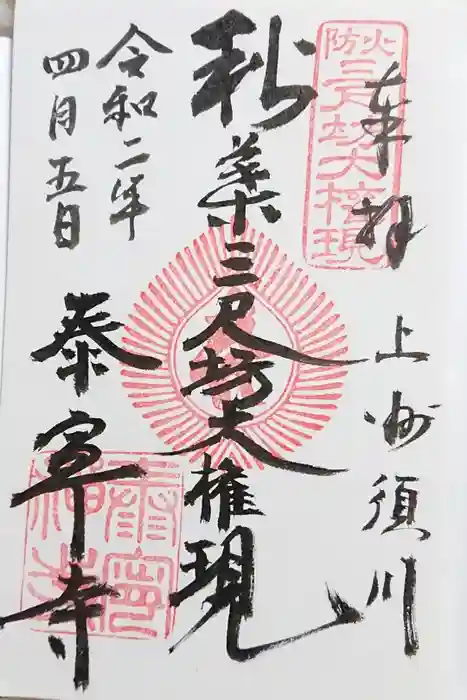 奉拝
上州須川
火防
三尺坊大権現
秋葉三尺坊大権現
令和二年
四月五日
泰寧寺